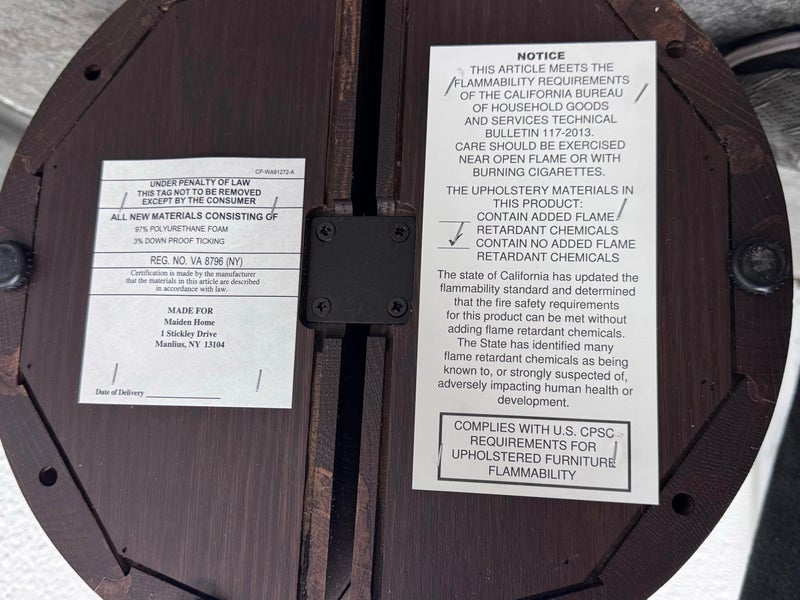 CP-WA91272-A
UNDER PENALTY OF LAW
THIS TAG NOT TO BE REMOVED
EXCEPT BY THE CONSUMER
ALL NEW MATERIALS CONSISTING OF
97% POLYURETHANE FOAM
3% DOWN PROOF TICKING
REG. NO. VA 8796 (NY)
Certification is made by the manufacturer
that the materials in this article are described
in accordance with law.
MADE FOR
Maiden Home
1 Stickley Drive
Manlius, NY 13104
Date of Delivery
NOTICE
THIS ARTICLE MEETS THE
FLAMMABILITY REQUIREMENTS
OF THE CALIFORNIA BUREAU
OF HOUSEHOLD GOODS
AND SERVICES TECHNICAL
BULLETIN 117-2013.
CARE SHOULD BE EXERCISED
NEAR OPEN FLAME OR WITH
BURNING CIGARETTES.
THE UPHOLSTERY MATERIALS IN
THIS PRODUCT:
CONTAIN ADDED FLAME
RETARDANT CHEMICALS
CONTAIN NO ADDED FLAME
RETARDANT CHEMICALS
The state of California has updated the
flammability standard and determined
that the fire safety requirements
for this product can be met without
adding flame retardant chemicals.
The State has identified many
flame retardant chemicals as being
known to, or strongly suspected of,
adversely impacting human health or
development.
COMPLIES WITH U.S. CPSC
REQUIREMENTS FOR
UPHOLSTERED FURNITURE
FLAMMABILITY